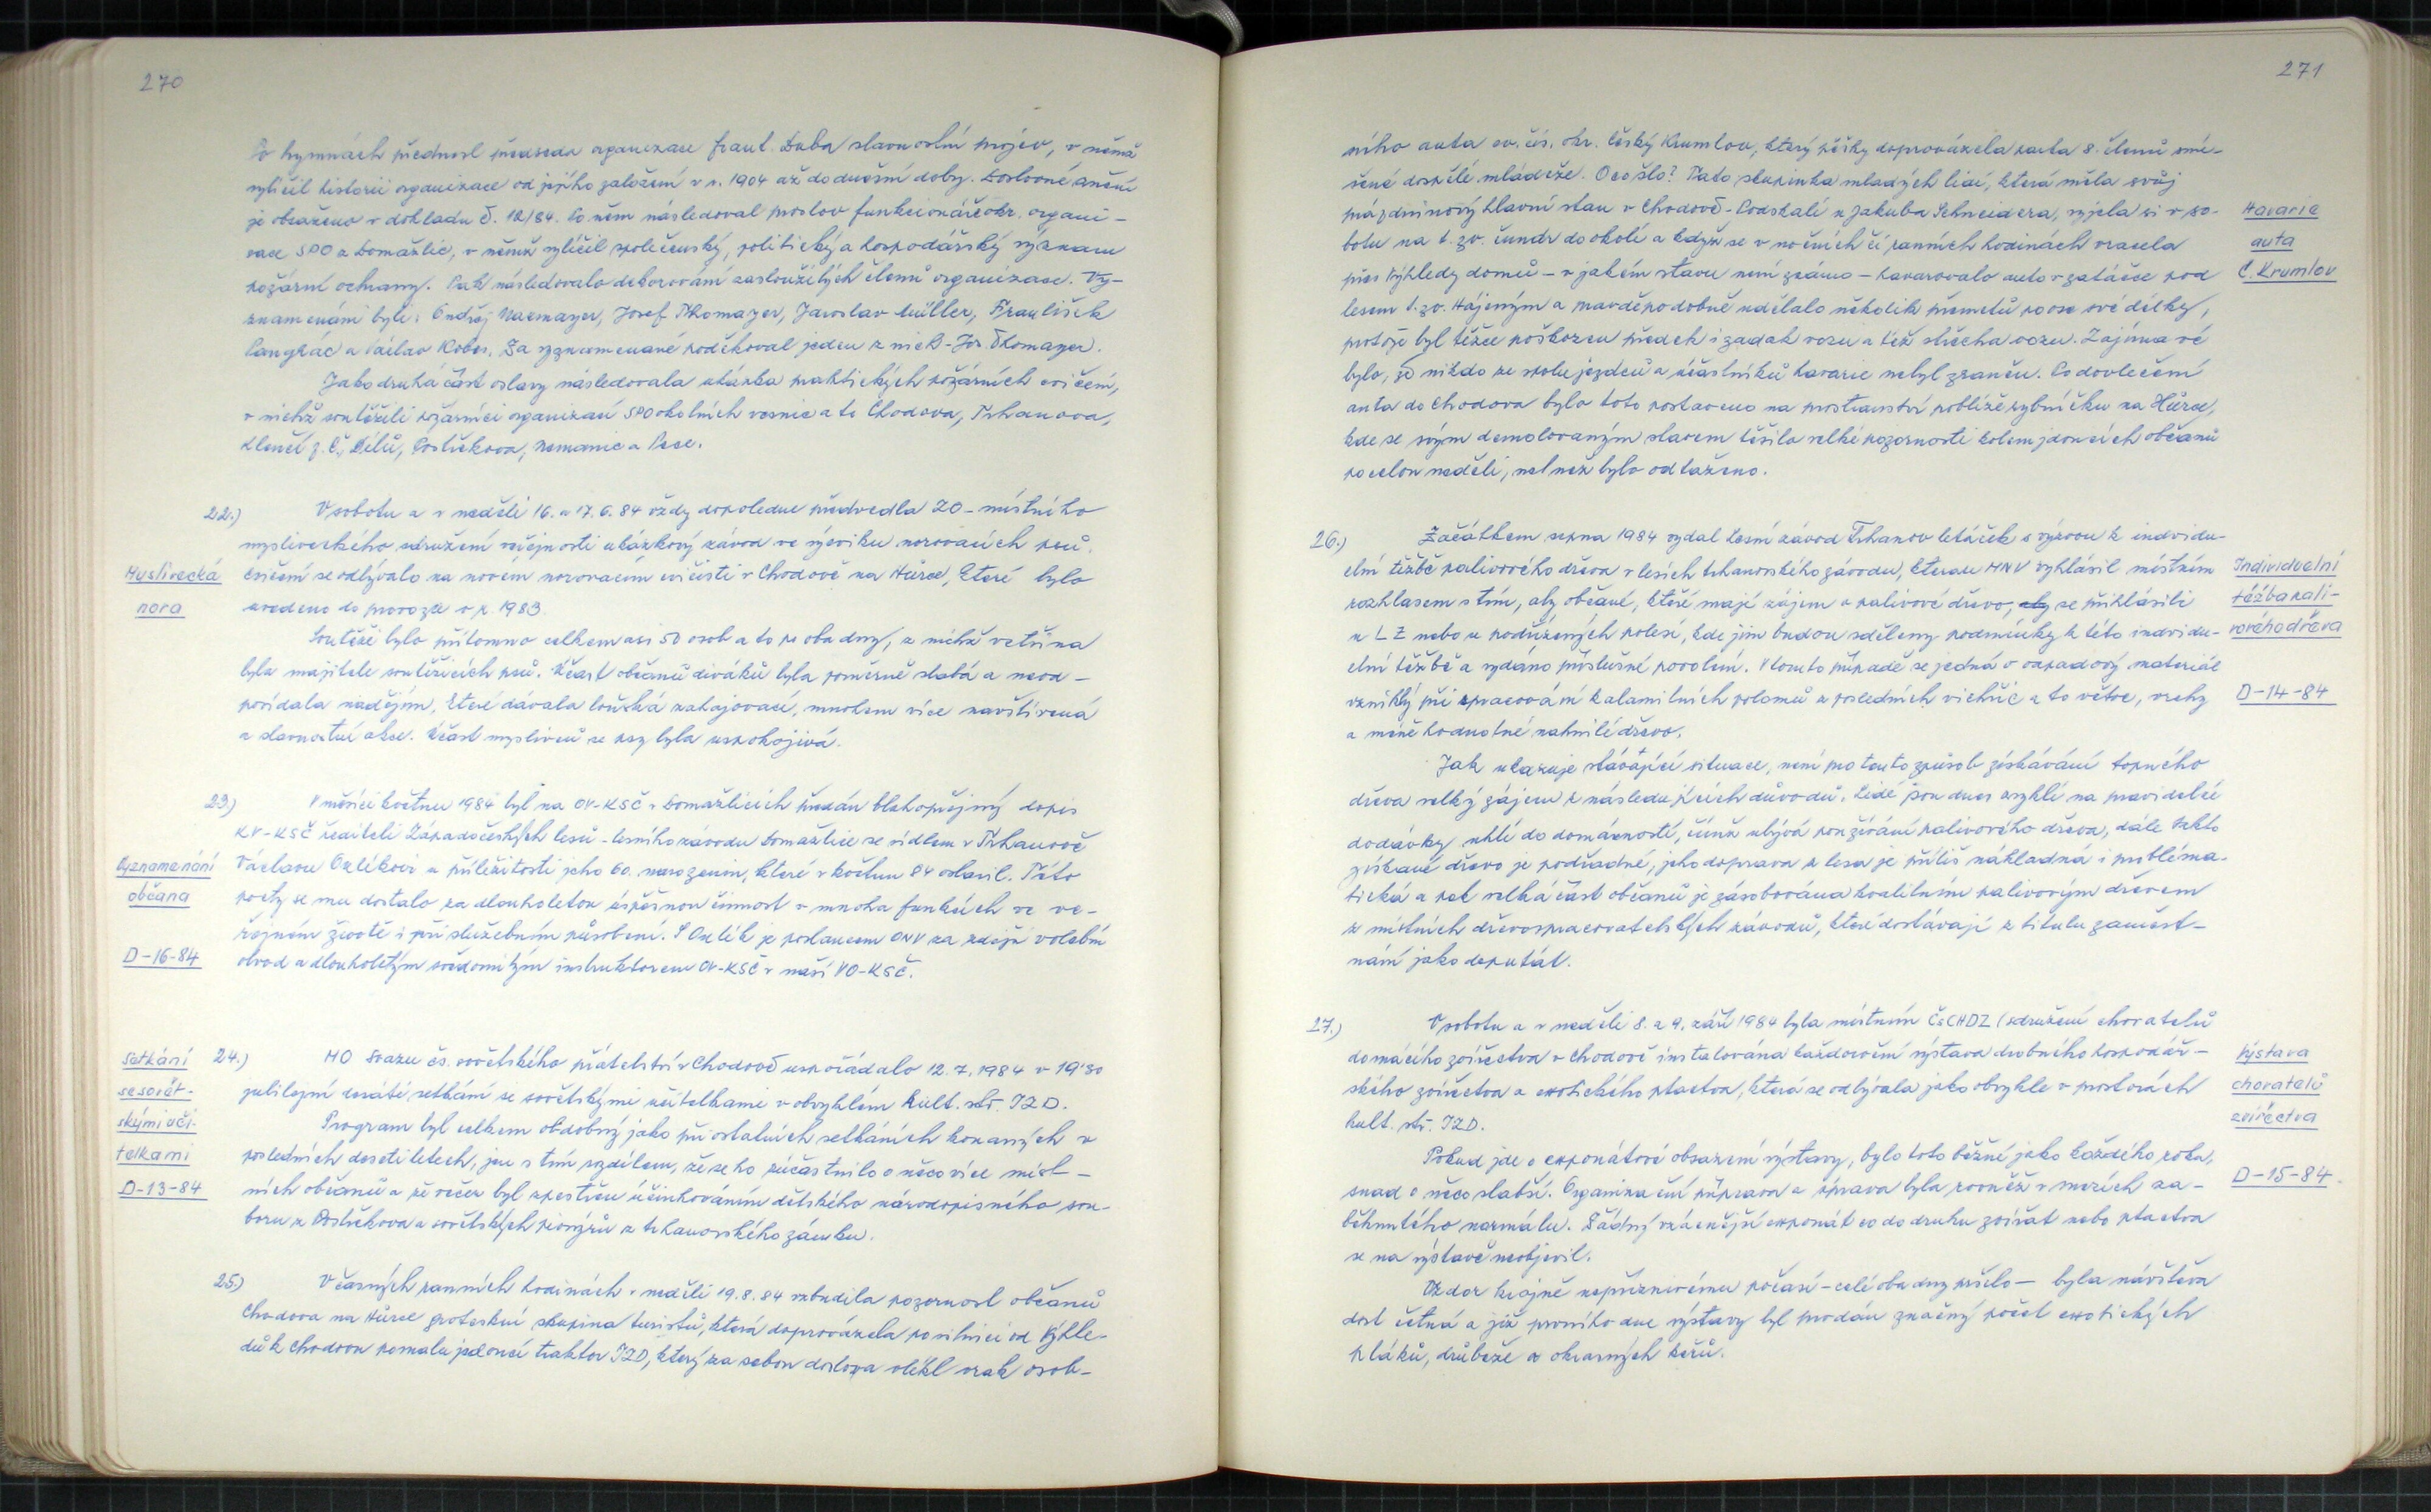 270
Po hymnách přednesl předseda organizace Frant. Duba slavnostní projev, v němž
vylíčil historii organizace od jejího založení v r. 1904 až do dnešní doby. Doslovné znění
je obsaženo v dokladu č. 12/84. Po něm následoval proslov funkcionáře okr. organi-
zace SPO z Domažlic, v němž vylíčil společenský, politický a hospodářský význam
požární ochrany. Pak následovalo dekorování zasloužilých členů organizace. Vy-
znamenáni byli: Ondřej Naxmayer, Josef Thomayer, Jaroslav Müller, František
Pangrác a Václav Kobes. Za vyznamenané poděkoval jeden z nich - Jos. Thomayer.
Jako druhá část oslavy následovala ukázka praktických požárních cvičení,
v nichž soutěžili požárníci organizací SPO okolních vesnic a to Chodova, Trhanova,
Klenčí p. Č., Dílů, Postřekova, Nemanic a Pece.
22.) V sobotu a v neděli 16. a 17. 6. 84 vždy dopoledne předvedla ZO - místního
mysliveckého sdružení veřejnosti ukázkový závod ve výcviku norovacích psů.
Myslivecká
nora
Cvičení se odbývalo na novém norovacím cvičišti v Chodově na Hůrce, které bylo
uvedeno do provozu v r. 1983.
Soutěže bylo přítomno celkem asi 50 osob a to po oba dny, z nichž většina
byla majitele soutěžících psů. Účast občanů diváků byla poměrně slabá a neod-
povídala nadějím, které dávala loňská zahajovací, mnohem více navštívená
a slavnostní akce. Účast myslivců se psy byla uspokojivá.
23.) V měsíci květnu 1984 byl na OV-KSČ v Domažlicích předán blahopřejný dopis
KV-KSČ řediteli Západočeských lesů - lesního závodu Domažlice se sídlem v Trhanově
Vyznamenání
občana
D-16-84
Václavu Ozlékovi u příležitosti jeho 60. narozenin, které v květnu 84 oslavil. Této
pocty se mu dostalo za dlouholetou úspěšnou činnost v mnoha funkcích ve ve-
řejném životě i při služebním působení. S Ozlék je poslancem ONV za zdejší volební
obvod a dlouholetým svědomitým instruktorem OV-KSČ v naší VO-KSČ.
Setkání
se sovět-
skými uči-
telkami
D-13-84
24.) MO Svazu čs. sovětského přátelství v Chodově uspořádalo 12. 7. 1984 v 19'30
jubilejní desáté setkání se sovětskými učitelkami v obvyklém kult. stř. JZD.
Program byl celkem obdobný jako při ostatních setkáních konaných v
posledních desetiletech, jen s tím rozdílem, že se ho zúčastnilo o něco více míst-
ních občanů a že večer byl zpestřen účinkováním dětského národopisného sou-
boru z Postřekova a sovětských pionýrů z trhanovského zámku.
25.) V časných ranních hodinách v neděli 19. 8. 84 vzbudila pozornost občanů
Chodova na Hůrce groteskní skupina turistů, která doprovázela po silnici od Výhle-
dů k Chodovu pomalu jedoucí traktor JZD, který za sebou doslova vlékl vrak osob-
271
ního auta ev. čís. okr. Český Krumlov, který pěšky doprovázela parta 8. členů smí-
šené dospělé mládeže. Oco šlo? Tato skupinka mladých lidí, která měla svůj
prázdninový hlavní stan v Chodově - Podskalí u Jakuba Schneidera, vyjela si v so-
botu na t. zv. čundr do okolí a když se v nočních či ranních hodinách vracela
přes Výhledy domů - v jakém stavu není známo - havarovalo auto v zatáčce pod
lesem t. zv. Hájeným a pravděpodobně udělalo několik přemetů po ose své délky,
protože byl těžce poškozen předek i zadek vozu a též střecha vozu. Zajímavé
bylo, že nikdo ze spolujezdců a účastníků havarie nebyl zraněn. Po dovlečení
auta do Chodova bylo toto postaveno na prostranství poblíže rybníčku na Hůrce,
kde se svým demolovaným stavem těšilo velké pozornosti kolemjdoucích občanů
po celou neděli, nel než bylo odtaženo.
Havarie
auta
Č. Krumlov
26.) Začátkem srpna 1984 vydal Lesní závod Trhanov letáček s výzvou k individu-
elní těžbě palivového dřeva v lesích trhanovského závodu, kterou MNV vyhlásil místním
rozhlasem s tím, aby občané, kteří mají zájem o palivové dřevo, aby se přihlásili
u LZ nebo u podřízených polesí, kde jim budou sděleny podmínky k této individu-
elní těžbě a vydáno příslušné povolení. V tomto případě se jedná o odpadový materiál
vzniklý při zpracování kalamitních polomů z posledních vichřic a to větve, vrchy
a méně hodnotné nahnilé dřevo.
Individuelní
těžba pali-
vového dřeva
D-14-84
Jak ukazuje stávající situace, není pro tento způsob získávání topného
dřeva velký zájem z následujících důvodů. Lidé jsou dnes zvyklí na pravidelné
dodávky uhlí do domácností, čímž ubývá používání palivového dřeva, dále takto
získané dřevo je podřadné, jeho doprava z lesa je příliš nákladná i probléma-
tická a pak velká část občanů je zásobována kvalitním palivovým dřevem
z místních dřevozpracovatelských závodů, které dostávají z titulu zaměst-
nání jako deputát.
27.) V sobotu a v neděli 8. a 9. září 1984 byla místním ČsCHDZ (sdružení chovatelů
domácího zvířectva v Chodově instalována každoroční výstava drobného hospodář-
ského zvířectva a exotického ptactva, která se odbývala jako obvykle v prostorách
kult. stř. JZD.
Výstava
chovatelů
zvířectva
D-15-84
Pokud jde o exponátové obsazení výstavy, bylo toto běžné jako každého roku,
snad o něco slabší. Organizační příprava a úprava byla rovněž v mezích za-
běhnutého normálu. Žádný vzácnější exponát co do druhu zvířat nebo ptactva
se na výstavě neobjevil.
Vzdor krajně nepříznivému počasí - celé oba dny pršelo - byla návštěva
dost četná a již prvního dne výstavy byl prodán značný počet exotických
ptáků, drůbeže a okrasných keřů.